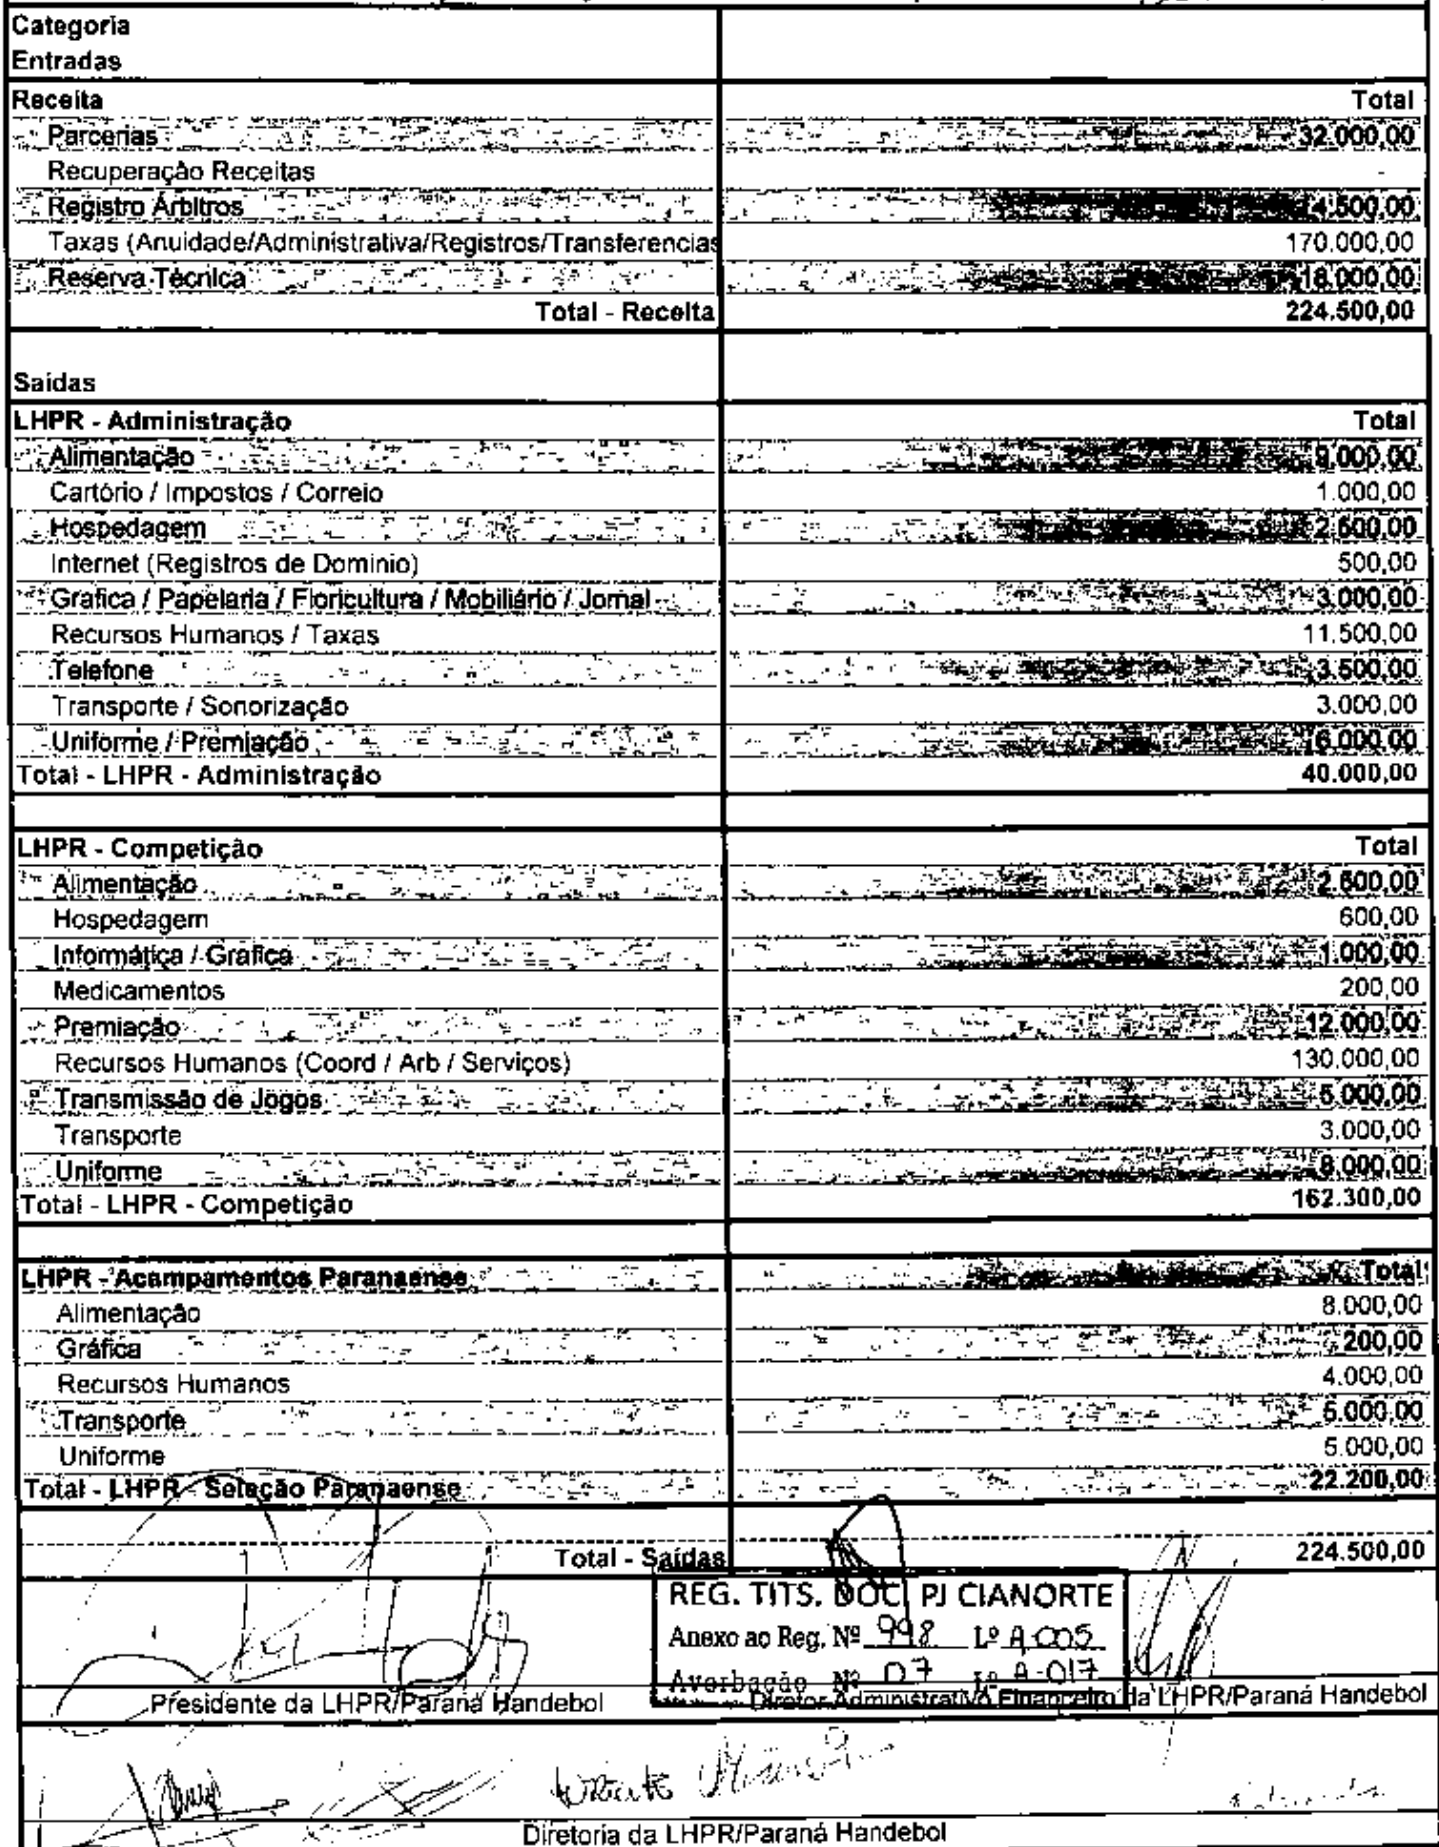 Categoria
Entradas
Receita Total
Parcerias 32.000,00
Recuperação Receitas -
Registro Árbitros 4.500,00
Taxas (Anuidade/Administrativa/Registros/Transferencias 170.000,00
Reserva Técnica 18.000,00
Total - Receita 224.500,00
Saídas
LHPR - Administração Total
Alimentação 9.000,00
Cartório / Impostos / Correio 1.000,00
Hospedagem 2.500,00
Internet (Registros de Dominio) 500,00
Grafica / Papelaria / Floricultura / Mobiliário / Jornal 3.000,00
Recursos Humanos / Taxas 11.500,00
Telefone 3.500,00
Transporte / Sonorização 3.000,00
Uniforme / Premiação 6.000,00
Total - LHPR - Administração 40.000,00
LHPR - Competição Total
Alimentação 2.500,00
Hospedagem 600,00
Informática / Grafica 1.000,00
Medicamentos 200,00
Premiação 12.000,00
Recursos Humanos (Coord / Arb / Serviços) 130.000,00
Transmissão de Jogos 5.000,00
Transporte 3.000,00
Uniforme 8.000,00
Total - LHPR - Competição 162.300,00
LHPR - Acampamentos Paranaense Total
Alimentação 8.000,00
Gráfica 200,00
Recursos Humanos 4.000,00
Transporte 5.000,00
Uniforme 5.000,00
Total - LHPR - Seleção Paranaense 22.200,00
Total - Saídas 224.500,00
REG. TITS. DOC. PJ CIANORTE
Anexo ao Reg. Nº 998 Lº A-005
Averbação Nº 07 Lº A-017
Presidente da LHPR/Paraná Handebol
Diretor Administrativo Financeiro da LHPR/Paraná Handebol
Diretoria da LHPR/Paraná Handebol